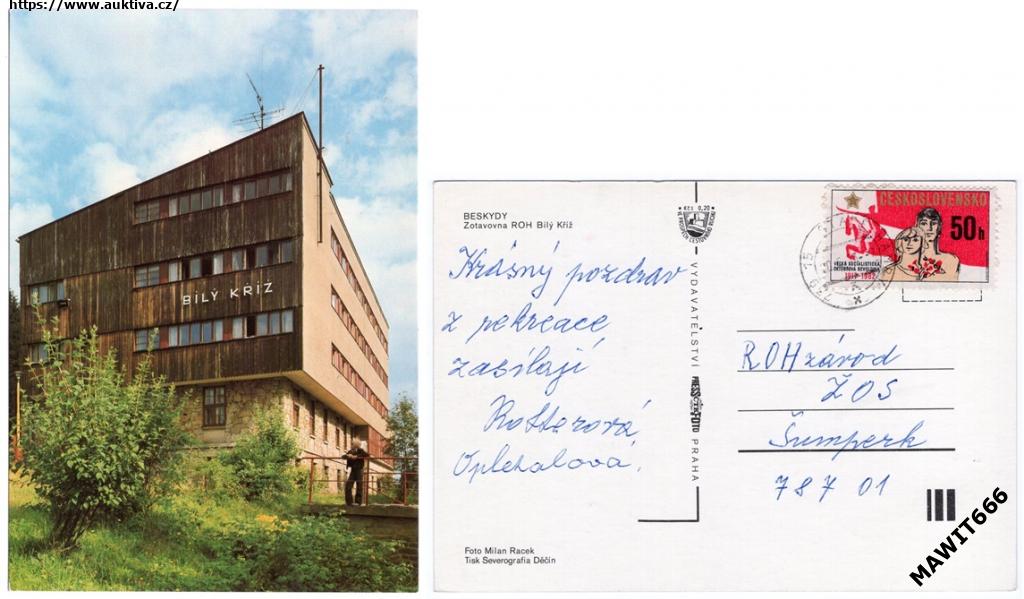 https://www.auktiva.cz/
BÍLÝ KŘÍŽ
BESKYDY
Zotavovna ROH Bílý Kříž
Krásný pozdrav
z rekreace
zasílají
Rotterová
Oplehalová.
Foto Milan Racek
Tisk Severografia Děčín
Kčs 0,20
VYDAVATELSTVÍ PRESSFOTO PRAHA
ČESKOSLOVENSKO
50h
VELKÁ SOCIALISTICKÁ
ŘÍJNOVÁ REVOLUCE
1917-1982
ROH závod
ŽOS
Šumperk
787 01
MAWIT666